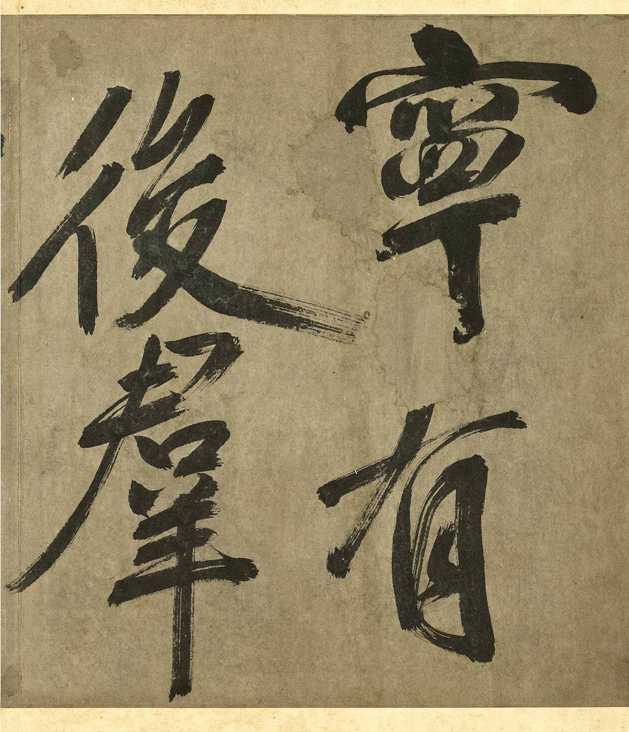 寧有
後羣